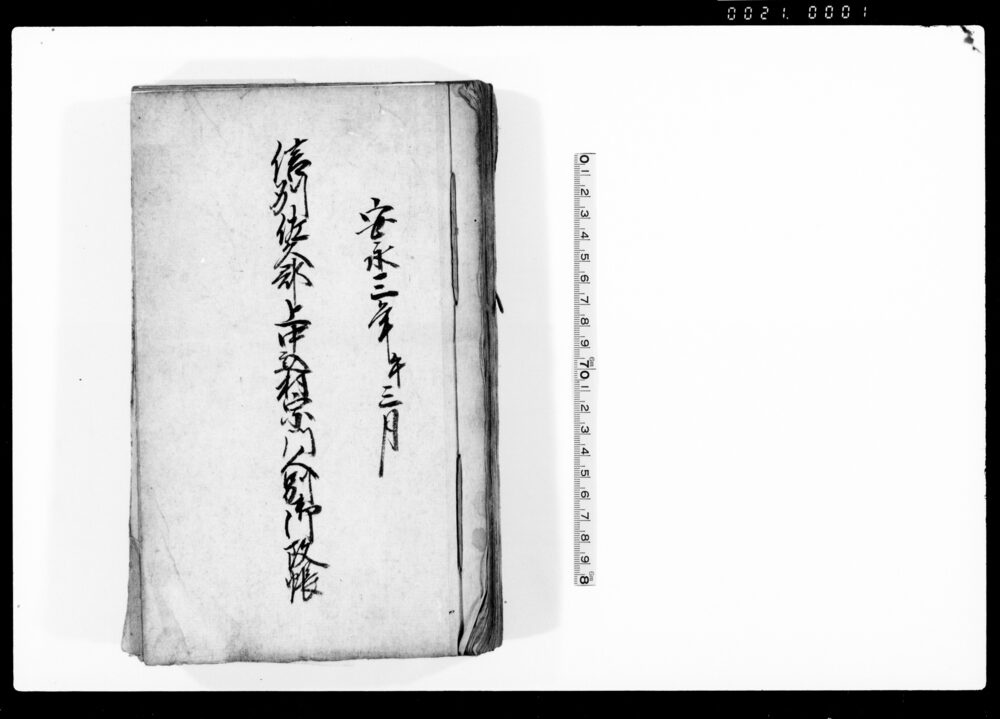 0021. 0001
安永三年午三月
信州佐久郡上中込村宗門人別御改帳
0 1 2 3 4 5 6 7 8 9 6m 70 1 2 3 4 5 6 7 8 9 6m 8